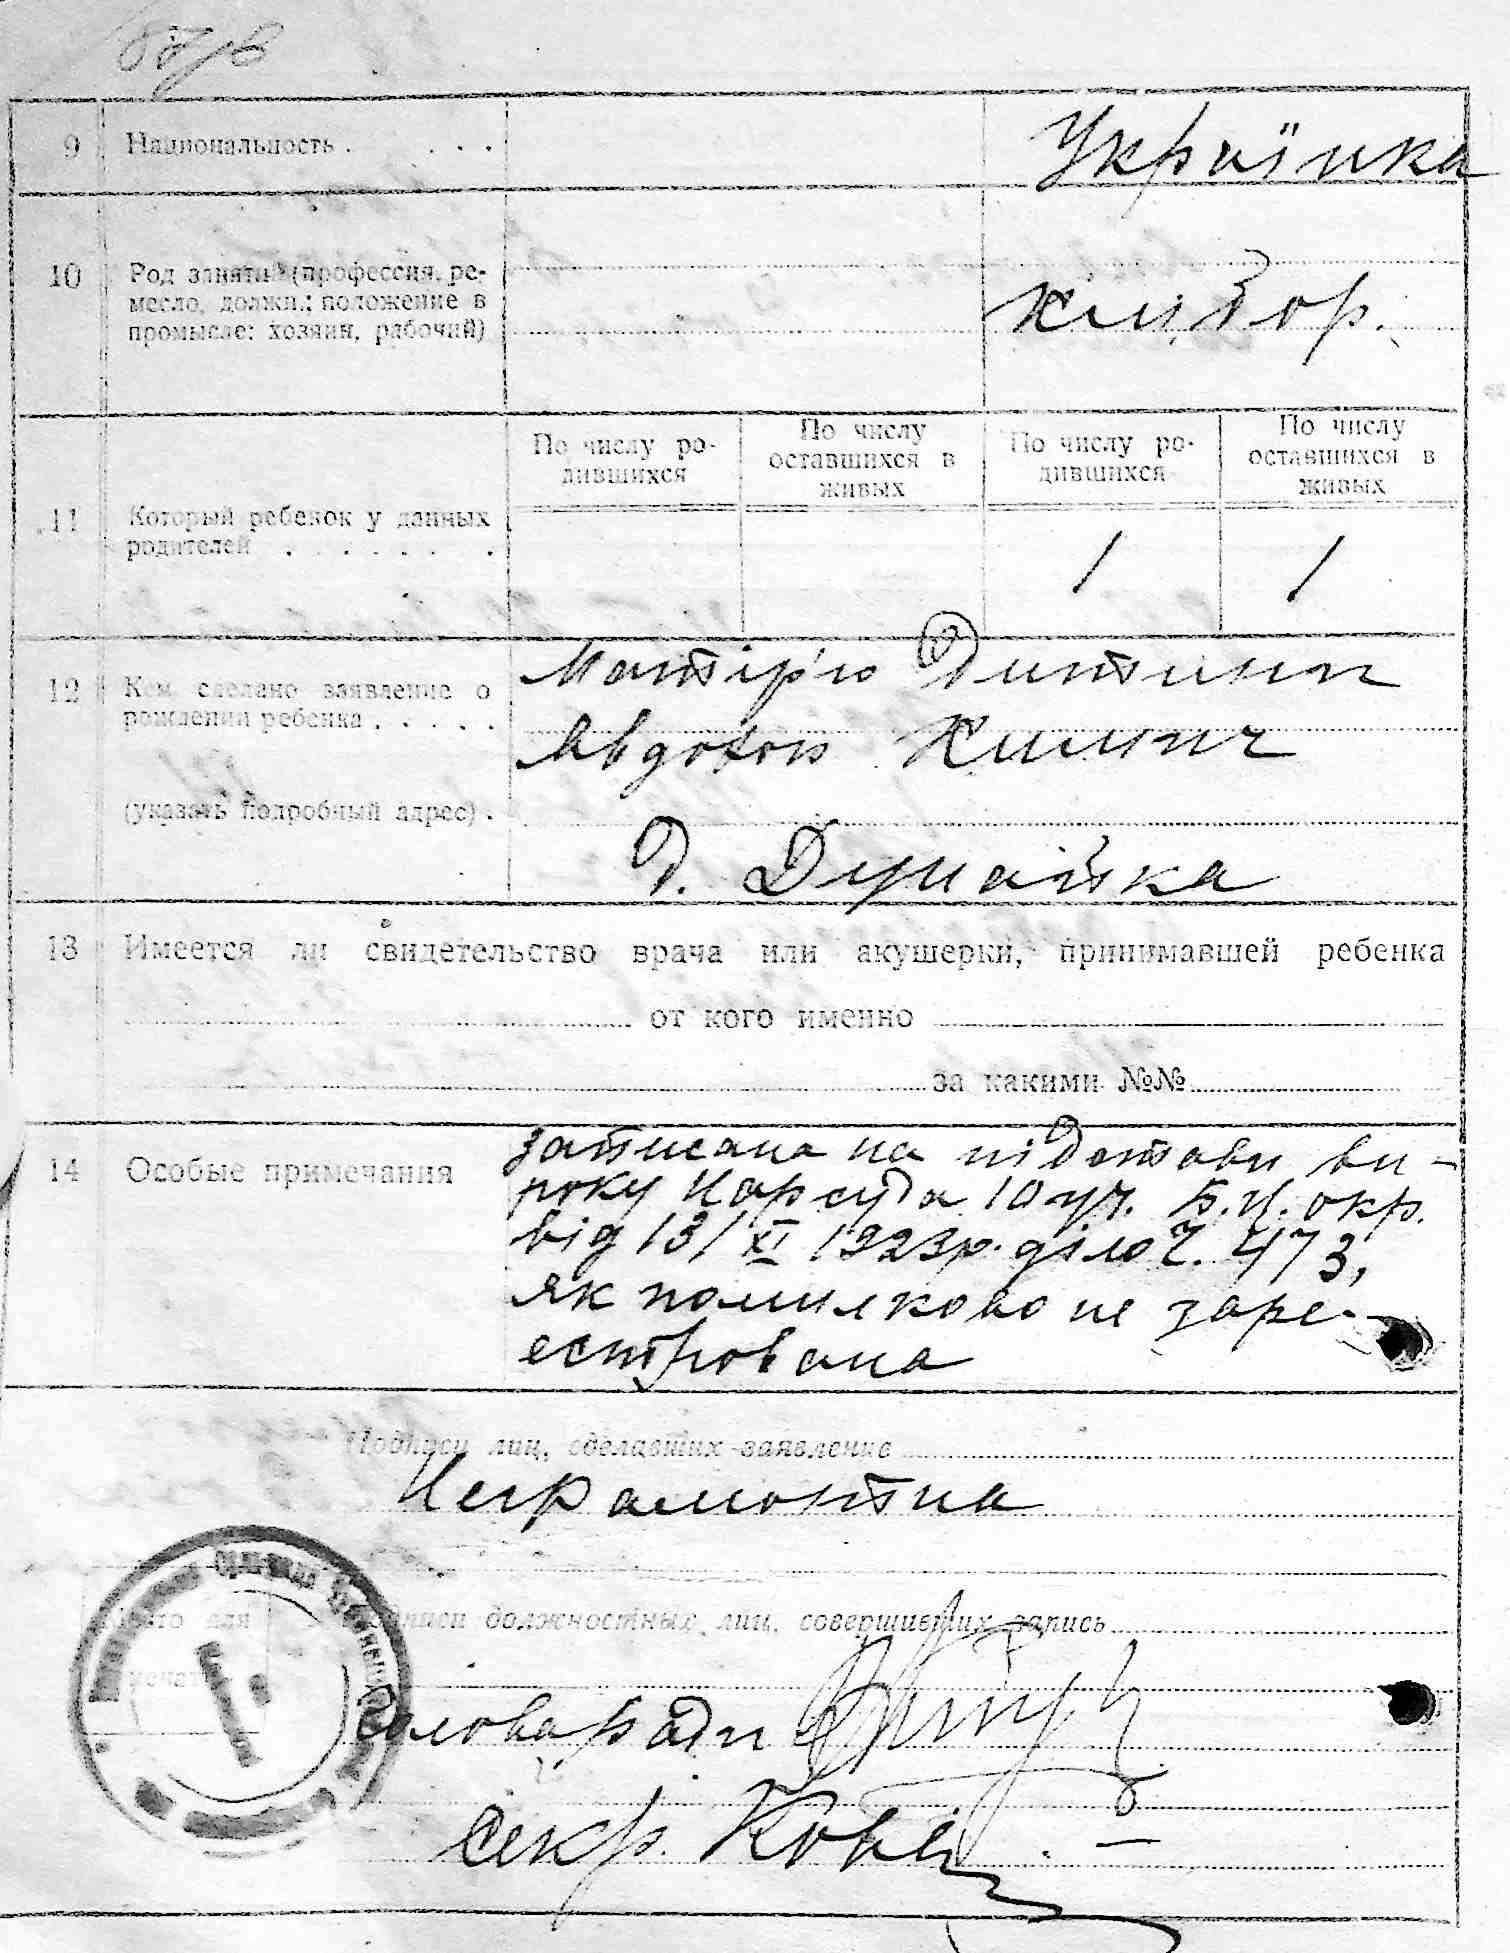 9 Национальность . . . . . Українка
10 Род занятий (профессия, ре-
месло, должн.; положение в
промысле: хозяин, рабочий)
хлібор.
По числу ро-
дившихся
По числу
оставшихся в
живых
По числу ро-
дившихся
По числу
оставшихся в
живых
11 Который ребенок у данных
родителей . . . . . .
1 1
12 Кем сделано заявление о
рождении ребенка . . . . .
(указать подробный адрес) .
Матір'ю Дитини
Д. Дунайка
13 Имеется ли свидетельство врача или акушерки, принимавшей ребенка
от кого именно
за какими №№
14 Особые примечания
записана на підставі ви-
року Нарсуда 10 уч. Б.Ц. окр.
від 13/XI 1923р. діло Ч. 473,
як помилково не заре-
естрована
Подписи лиц, сделавших заявление
Неграмотна
Место для
печати
Подписи должностных лиц, совершивших запись
Голова ради
Секр.